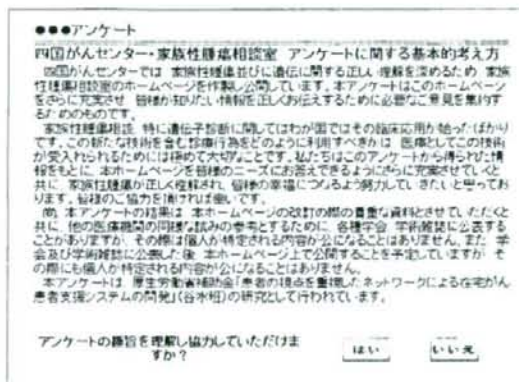 ●●●アンケート
四国がんセンター・家族性腫瘍相談室 アンケートに関する基本的考え方
四国がんセンターでは 家族性腫瘍並びに遺伝に関する正しい理解を深めるため 家族
性腫瘍相談室のホームページを作製し公開しています。本アンケートはこのホームページ
をさらに充実させ 皆様が知りたい情報を正しくお伝えするために必要なご意見を集約す
るためのものです。
家族性腫瘍相談 特に遺伝子診断に関してはわが国ではその臨床応用が始ったばかり
です。この新たな技術を含む診療行為をどのように利用すべきかは 医療としてこの技術
が受入れられるためには極めて大切なことです。私たちはこのアンケートから得られた情
報をもとに、本ホームページを皆様のニーズにお答えできるようにさらに充実させていくと
共に 家族性腫瘍が正しく理解され 皆様の幸福につながるよう努力していきたいと思ってお
ります。皆様のご協力を頂ければ幸いです。
尚 本アンケートの結果は 本ホームページの改訂の際の貴重な資料とさせていただくと
共に 他の医療機関の同様な試みの参考とするために 各種学会 学術雑誌に公表する
ことがありますが その際は個人が特定される内容が公になることはありません。また 学
会及び学術雑誌に公表した後 本ホームページ上で公開することを予定していますが そ
の際にも個人が特定される内容が公になることはありません。
本アンケートは 厚生労働省補助金「患者の視点を重視したネットワークによる在宅がん
患者支援システムの開発」(谷水班)の研究として行われています。
アンケートの趣旨を理解し協力していただけま
すか？
はい
いいえ